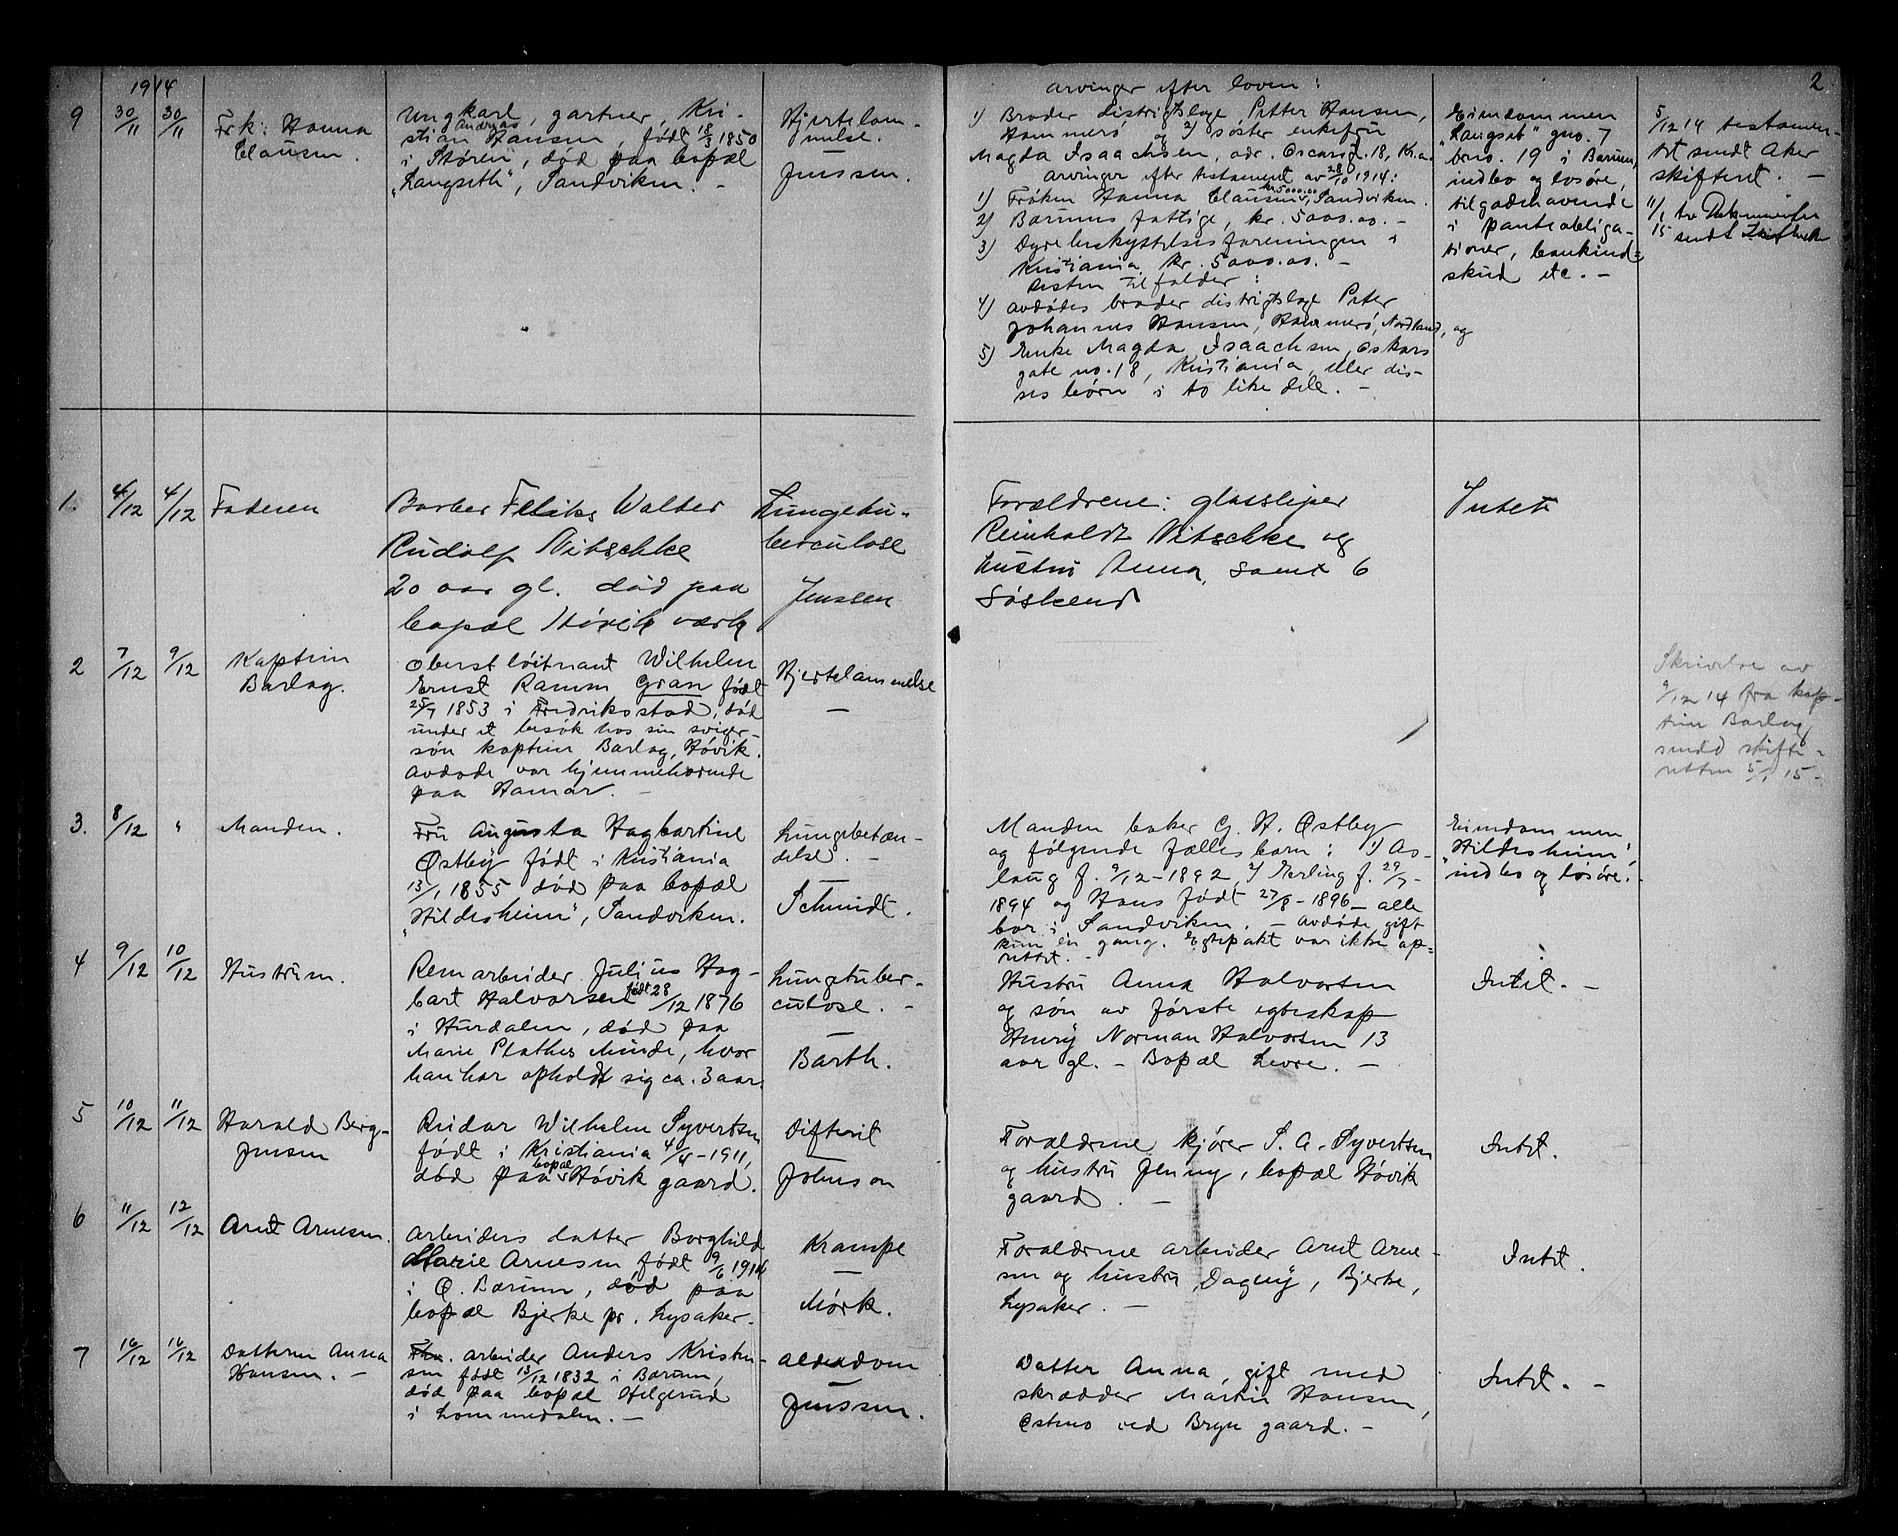 1914
2
9
30/11
30/11
Frk. Hanna
Clausen.
Ungkarl, gartner, Kri-
stian Andreas Hansen, født 18/3 1850
i Støren, død paa bopæl
„Langseth", Sandviken. -
Hjertelam-
melse.
Jenssen.
arvinger efter loven:
1) Broder distriktslæge Petter Hansen,
Hammerø og 2) søster enkefru
Magda Isaachsen, adr. Oscarsgt. 18, Kr.a.
arvinger efter testament av 28/10 1914:
1) Frøken Hanna Clausen, kr 5000.00 Sandviken.
2) Bærums fattige, kr. 5000.00. -
3) Dyrebeskyttelsesforeningen i
Kristiania kr. 5000.00. -
Resten tilfalder:
4) avdødes broder distriktslæge Peter
Johannes Hansen, Hammerø, Nordland, og
5) Enke Magda Isaachsen, Oskars
gate no. 18, Kristiania, eller dis-
ses børn i to like dele. -
Eiendommen
„Langset" gno. 7
brno. 19 i Bærum,
indbo og løsøre,
tilgodehavende
i panteobliga-
tioner, bankind-
skud etc. -
5/12 14 testamen-
tet sendt Aker
skifteret. -
11/1 15
sendt
1.
4/12
4/12
Faderen
Barber Feliks Walter
Rudolf Nitschke
20 aar gl. død paa
bopæl Høvik værk
Lungetu-
berculose
Jenssen
Forældrene: glassliper
Reinholdt Nitschke og
hustru Anna, samt 6
søskend
Intet
2
7/12
9/12
Kaptein
Barlag.
Oberstløitnant Wilhelm
Ernst Ramm Gran født
25/7 1853 i Fredriksstad, død
under et besøk hos sin sviger-
søn kaptein Barlag, Høvik.
Avdøde var hjemmehørende
paa Hamar. -
Hjertelammelse
-
Skrivelse av
9/12 14 fra kap-
tein Barlag
sendt skifte-
retten 5/1 15 -
3.
8/12
"
Manden.
Fru Augusta Hagbartine
Østby født i Kristiania
13/1 1855 død paa bopæl
„Hildesheim", Sandviken.
Lungebetæn-
delse. -
Schmidt.
Manden baker G. H. Østby
og følgende fællesbarn: 1) As-
laug f. 9/12 - 1892 2) Erling f. 29/7 -
1894 og Hans født 27/8 - 1896 - alle
bor i Sandviken. - avdøde gift
kun én gang. Egtepakt var ikke op-
rettet. -
Eiendommen
„Hildesheim",
indbo og løsøre. -
4
9/12
10/12
Hustruen.
Rem arbeider Julius Hag-
bart Halvorsen født 28/12 1876
i Hurdalen, død paa
Marie Plathes Minde, hvor
han har opholdt sig ca. 3 aar.
Lungetuber-
culose. -
Barth.
Hustru Anna Halvorsen
og søn av første egteskap
Henry Norman Halvorsen 13
aar gl. - Bopæl Levre. -
Intet. -
5
10/12
11/12
Harald Berg-
Jensen
Reidar Wilhelm Syvertsen
født i Kristiania 4/4 - 1911,
død paa bopæl Høvik gaard.
Difterit
Johnson
Forældrene kjører S. A. Syvertsen
og hustru Jenny, bopæl Høvik
gaard. -
Intet.
6
11/12
12/12
Arnt Arnesen.
Arbeiders datter Borghild
Marie Arnesen født 9/6 1914
i Ø. Bærum, død paa
bopæl Bjerke pr. Lysaker.
Krampe
-
Mørk.
Forældrene arbeider Arnt Arne-
sen og hustru Dagny, Bjerke,
Lysaker. -
Intet.
7
16/12
16/12
Datteren Anna
Hansen. -
Fhv. arbeider Anders Kristen-
sen født 13/12 1832 i Bærum,
død paa bopæl Helgerud
i Lommedalen. -
Alderdom
Jenssen.
Datter Anna, gift med
skrædder Martin Hansen,
Østmo ved Bryn gaard. -
Intet. -